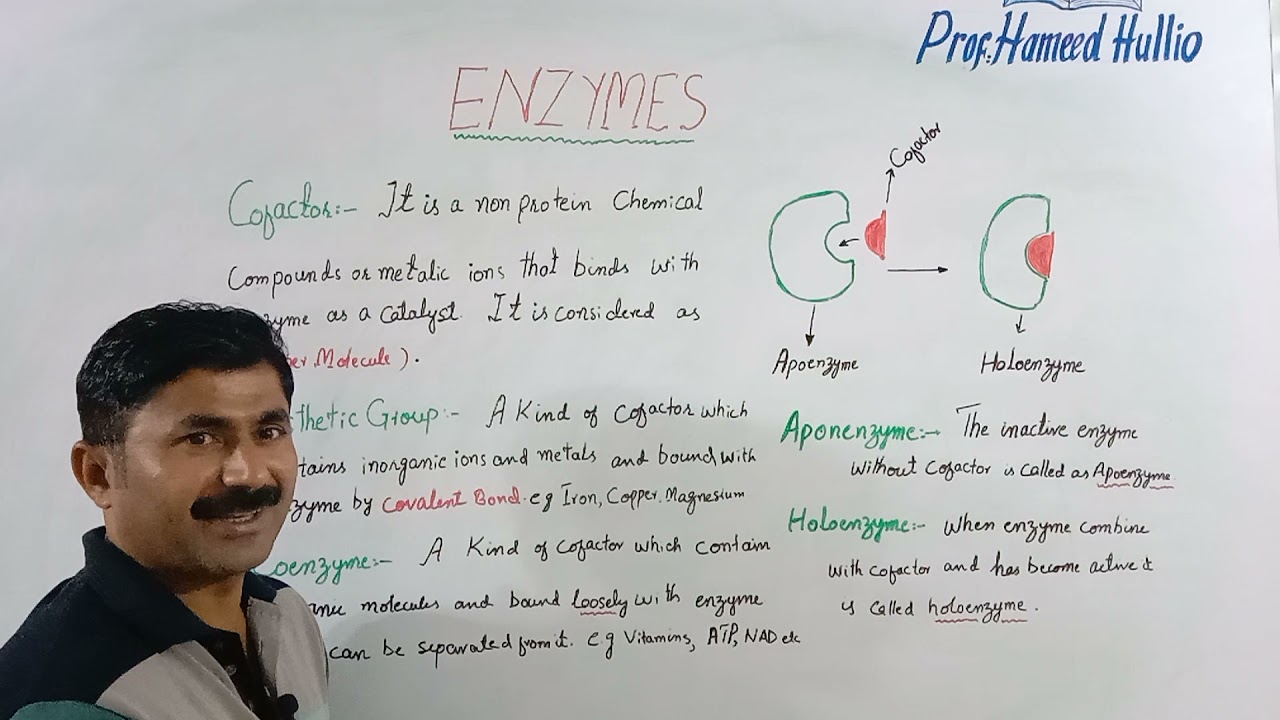 Prof: Hameed Hullio
ENZYMES
Cofactor:- It is a non protein Chemical
Compounds or metalic ions that binds with
zyme as a catalyst. It is considered as
er Molecule).
thetic Group:- A Kind of cofactor which
tains inorganic ions and metals and bound with
zyme by Covalent Bond. eg Iron, Copper, Magnesium
oenzyme:- A Kind of cofactor which contain
nic molecules and bound loosely with enzyme
can be separated from it. e.g Vitamins, ATP, NAD etc
Cofactor
Apoenzyme
Holoenzyme
Aponenzyme:- The inactive enzyme
without cofactor is called as Apoenzyme
Holoenzyme:- When enzyme combine
with cofactor and has become active it
is called holoenzyme.